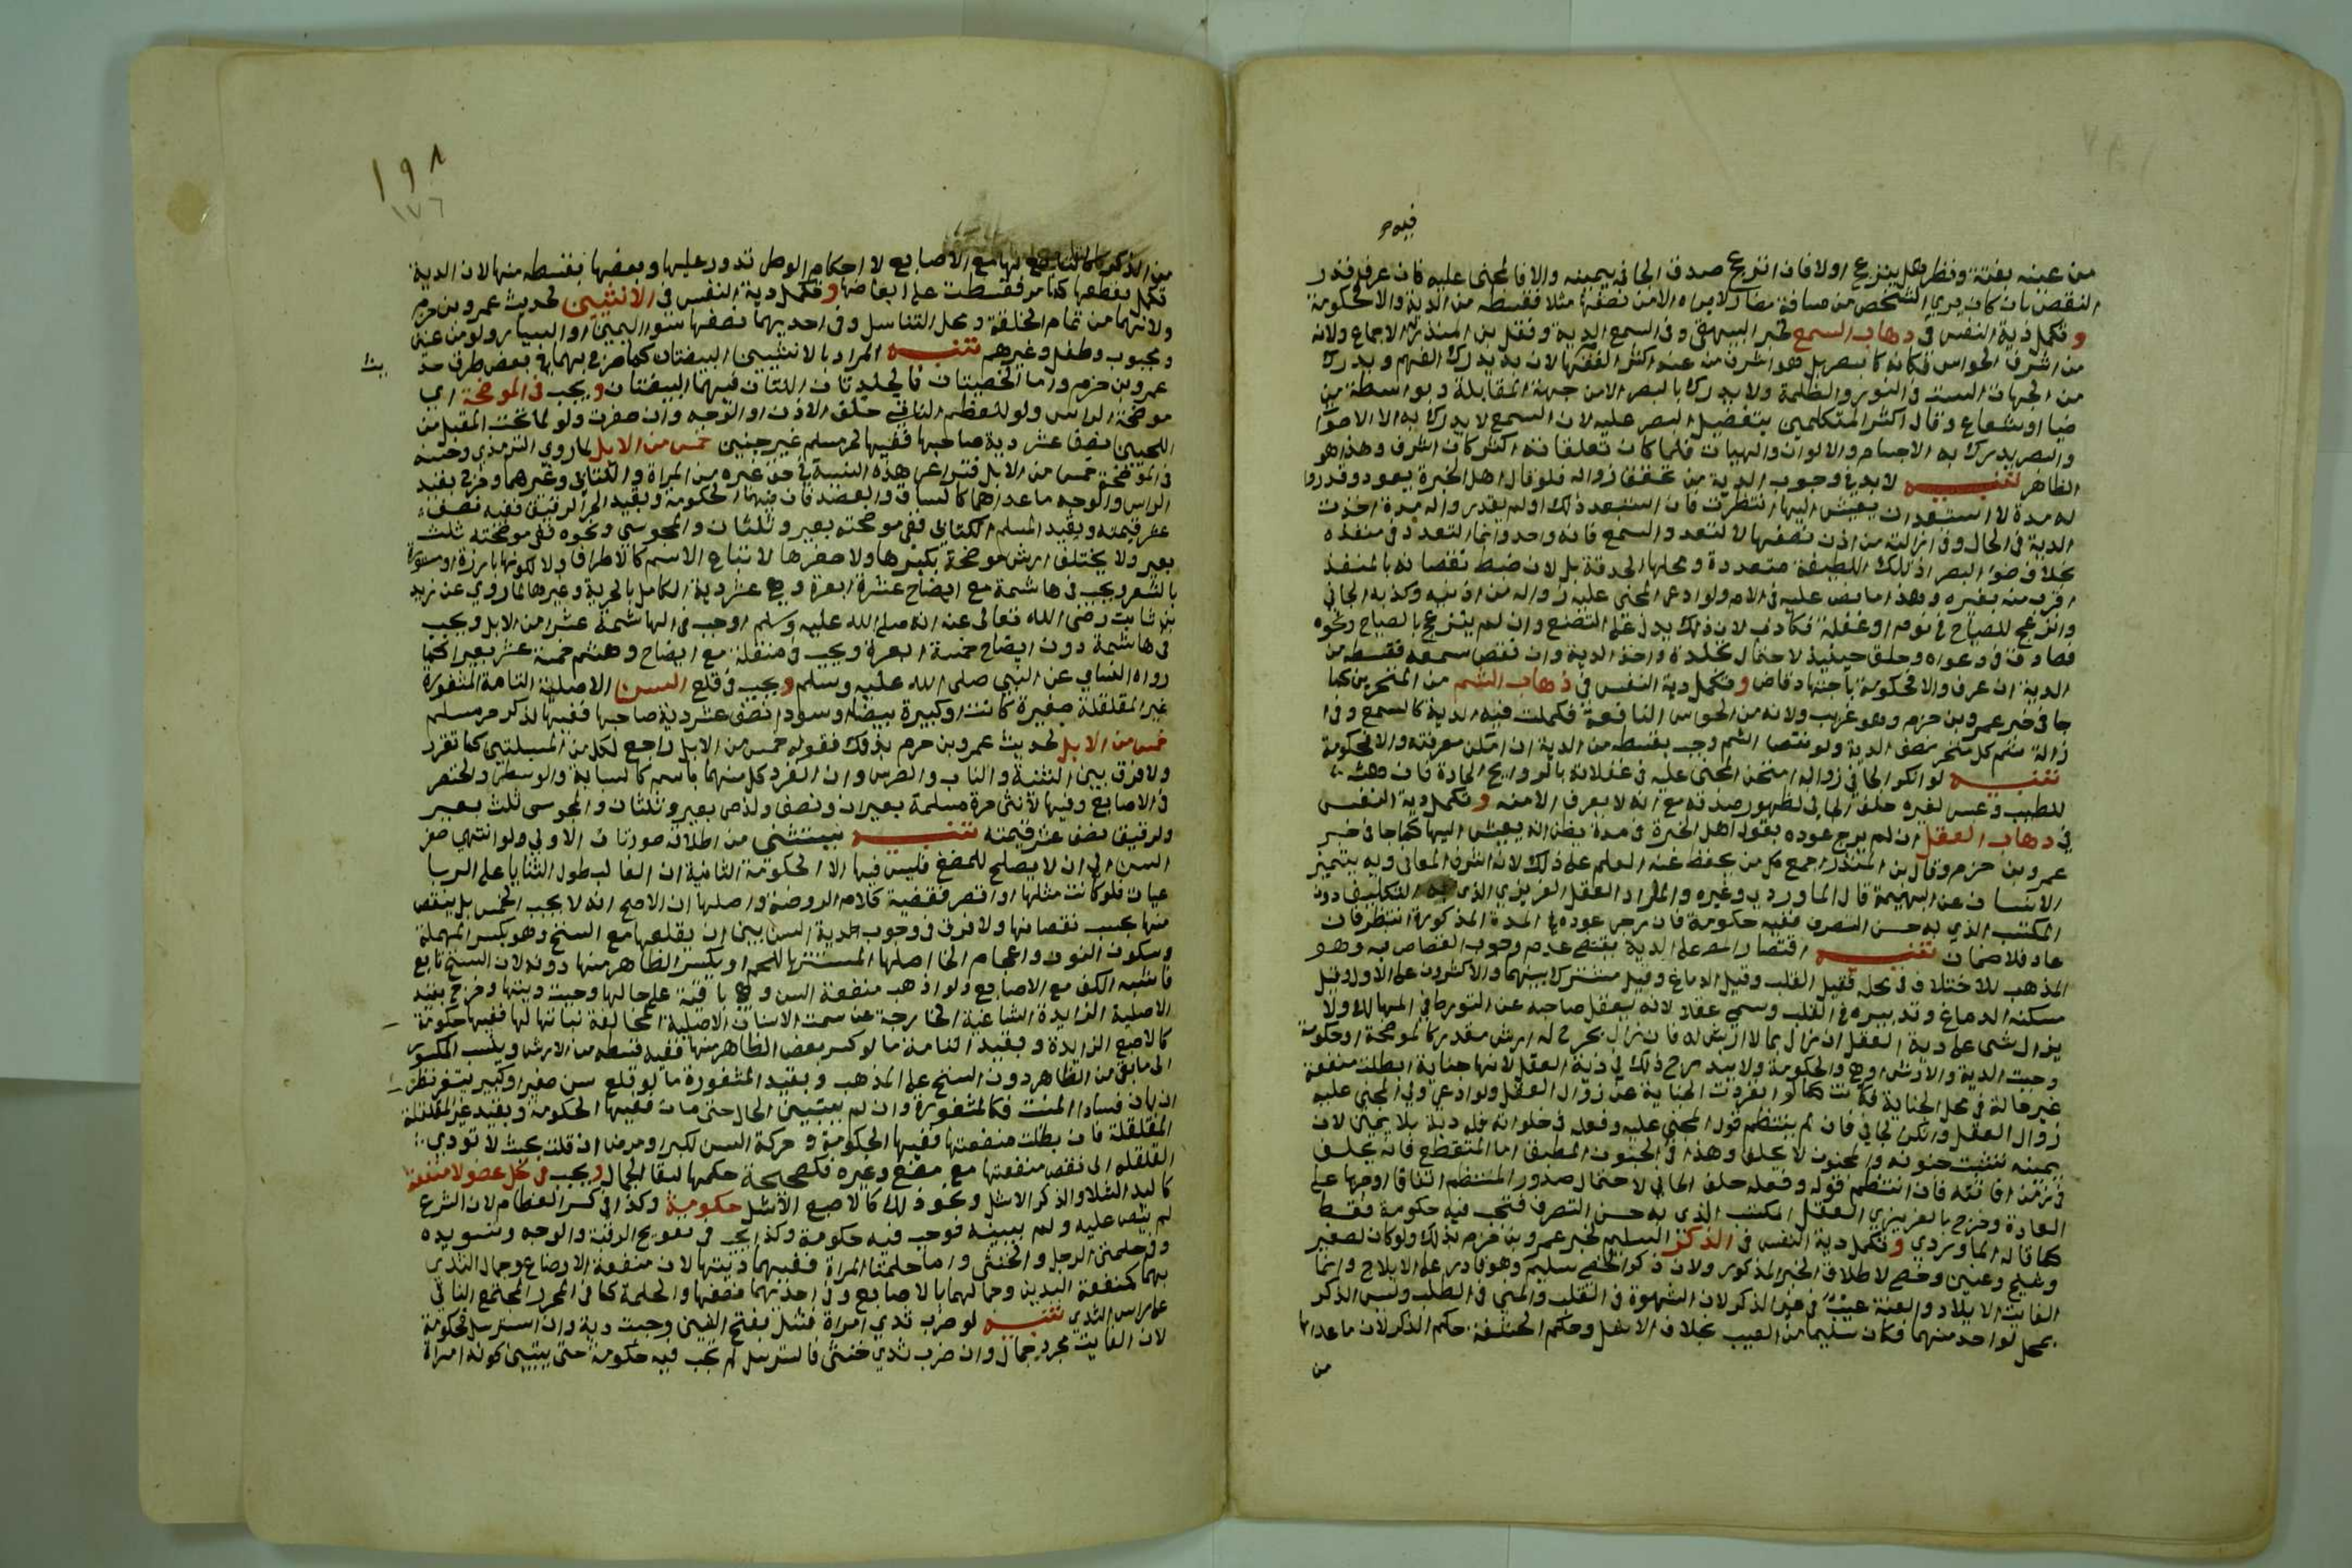 من عينه بغتة ونظر هل ينزعج اولا فان انزعج صدق الجاني بيمينه والا فالمجنى عليه فان عرف قدر
النقص بان كان يري الشخص من مسافة فصار لا يراه الا من نصفها مثلا فقسطه من الدية والا فحكومة
و تكمل دية النفس في دهاب السمع لخبر البيهقي وفى السمع الدية ونقل بن المنذر فيه الاجماع ولانه
من اشرف الحواس فكان كالبصر بل هو اشرف منه عند اكثر الفقها لان به يدرك الفهم ويدرك
من الجهات الست وفى النور والظلمة ولا يدرك بالبصر الا من جهة المقابلة وبواسطة من
ضيا او شعاع وقال اكثر المتكلمين بتفضيل البصر عليه لان السمع لا يدرك به الا الاصوات
والبصر يدرك به الاجسام والالوان والهيات فلما كان تعلقاته اكثر كان اشرف وهذا هو
الظاهر تنبيه لا بد في وجوب الدية من تحقق زواله فلو قال اهل الخبرة يعود وقدروا
له مدة لا يستبعد ان يعيش اليها انتظرت فان استبعد ذلك اولم يقدروا له مدة اخذت
الدية في الحال وفى ازالته من اذن نصفها لا لتعدد السمع فانه واحد وانما التعدد في منفذه
بخلاف ضوء البصر اذ تلك اللطيفة متعددة ومحلها الحدقة بل لان ضبط نقصانه بالمنفذ
اقرب منه بغيره وهذا ما نص عليه في الام ولو ادعى المجنى عليه زواله من اذنيه وكذبه الجاني
وانزعج للصياح في نوم او غفلة فكاذب لان ذلك يدل على التصنع وان لم ينزعج بالصياح ونحوه
فصادق في دعواه وحلف حينيذ لاحتمال تجلده واخذ الدية وان نقص سمعه فقسطه من
الدية ان عرف والا فحكومة باجتهاد قاض و تكمل دية النفس في ذهاب الشم من المنخرين كما
جا في خبر عمرو بن حزم وهو غريب ولانه من الحواس النافعة فكملت فيه الدية كالسمع وفى
ازالة شم كل منخر نصف الدية ولو نقص الشم وجب بقسطه من الدية ان امكن معرفته والا فحكومة
تنبيه لو انكر الجاني زواله امتحن المجنى عليه في غفلاته بالروايح الحادة فان هش
للطيب وعبس لغيره حلف الجاني لظهور صدقه مع انه لا يعرف الا منه و تكمل دية النفس
في دهاب العقل ان لم يرج عوده بقول اهل الخبرة في مدة يظن انه يعيش اليها كما جا في خبر
عمرو بن حزم وقال بن المنذر اجمع كل من يحفظ عنه العلم على ذلك لانه اشرف المعاني وبه يتميز
الانسان عن البهيمة قال الماوردي وغيره والمراد العقل الغريزي الذي به التكليف دون
المكتسب الذي به حسن التصرف ففيه حكومة فان رجى عوده في المدة المذكورة انتظر فان
عاد فلا ضمان تنبيه اقتصار المص على الدية يقتضي عدم وجوب القصاص به وهو
المذهب للاختلاف في محله فقيل القلب وقيل الدماغ وقيل مشترك بينهما والاكثرون على الاول وقيل
مسكنه الدماغ وتدبيره في القلب وسمي عقلا لانه يعقل صاحبه عن التورط في المهالك ولا
يزاد شى على دية العقل ان زال بما لا ارش له فان زال بجرح له ارش مقدر كالموضحة او حكومة
وجبت الدية والارش او هي والحكومة ولا يندرج ذلك في دية العقل لانها جناية ابطلت منفعة
غير حالة في محل الجناية فكانت كما لو انفردت الجناية عن زوال العقل ولو ادعى ولي المجنى عليه
زوال العقل وانكر الجاني فان لم ينتظم قول المجنى عليه وفعله في خلواته فله دية بلا يمين لان
يمينه تثبت جنونه والمجنون لا يحلف وهذا في الجنون المطبق اما المتقطع فانه يحلف
في زمن افاقته فان انتظم قوله وفعله حلف الجاني لاحتمال صدور المنتظم اتفاقا او جريا على
العادة وخرج بالغريزي العقل المكتسب الذي به حسن التصرف فتجب فيه حكومة فقط
كما قاله الماوردي و تكمل دية النفس في الذكر السليم لخبر عمرو بن حزم بذلك ولو كان لصغير
وشيخ وعنين وخصي لاطلاق الخبر المذكور ولان ذكر الخصي سليم وهو قادر على الايلاج وانما
الفايت الايلاد والعنة عيب في غير الذكر لان الشهوة في القلب والمني في الصلب وليس الذكر
بمحل لواحد منهما فكان سليما من العيب بخلاف الاشل وحكم الحشفة حكم الذكر لان ما عداها
من
١٩٨
١٧٦
من الذكر كالتابع لها مع الاصابع لان احكام الوطى تدور عليها وبعضها بقسطه منها لان الدية
تكمل بقطعها كما مر فقسطت على ابعاضها و تكمل دية النفس في الانثيين لحديث عمرو بن حزم
ولانهما من تمام الخلقة ومحل التناسل وفى احديهما نصفها سوا اليمين او اليسار ولو من عنين
ومجبوب وطفل وغيرهم تنبيه المراد بالانثيين البيضتان كما صرح بهما في بعض طرق حديث
عمرو بن حزم واما الخصيتان فالجلدتان اللتان فيهما البيضتان و يجب في الموضحة اي
موضحة الراس ولو للعظم الناتي خلف الاذن او الوجه وان صغرت ولو لما تحت المقبل من
اللحيين نصف عشر دية صاحبها ففيها لحر مسلم غير جنين خمس من الابل لما روي الترمذي وحسنه
في الموضحة خمس من الابل فتراعى هذه النسبة في حق غيره من المراة والكتابي وغيرهما وخرج بقيد
الراس والوجه ما عداهما كالساق والعضد فان فيهما الحكومة وبقيد الحر الرقيق ففيه نصف
عشر قيمته وبقيد المسلم الكتابي ففي موضحته بعير وثلثان والمجوسي ونحوه ففي موضحته ثلث
بعير ولا يختلف ارش موضحة بكبرها ولا صغرها لاتباع الاسم كالاطراف ولا لكونها بارزة او مستورة
بالشعر ويجب في هاشمة مع ايضاح عشرة ابعرة وهي عشر دية الكامل بالحرية وغيرها لما روي عن زيد
بن ثابت رضى الله تعالى عنه انه صلى الله عليه وسلم اوجب في الهاشمة عشرا من الابل ويجب
في هاشمة دون ايضاح خمسة ابعرة ويجب في منقلة مع ايضاح وهشم خمسة عشر بعيرا كما
رواه النسايي عن النبي صلى الله عليه وسلم و يجب في قلع السن الاصلية التامة المثغورة
غير المقلقلة صغيرة كانت او كبيرة بيضا او سودا نصف عشر دية صاحبها ففيها لذكر حر مسلم
خمس من الابل لحديث عمرو بن حزم بذلك فقوله خمس من الابل راجع لكل من المسيلتين كما تقرر
ولا فرق بين الثنية والناب والضرس وان انفرد كل منهما باسم كالسبابة والوسطى والخنصر
في الاصابع وفيها لانثى حرة مسلمة بعيران ونصف ولذمي بعير وثلثان والمجوسى ثلث بعير
ولرقيق نصف عشر قيمته تنبيه يستثنى من اطلاقه صورتان الاولي لو انتهي صغر
السن الي ان لا يصلح للمضغ فليس فيها الا الحكومة الثانية ان الغالب طول الثنايا على الربا
عيات فلو كانت مثلها او اقصر فقضية كلام الروضة واصلها ان الاصح انه لا يجب الخمس بل ينقص
منها بحسب نقصانها ولا فرق في وجوب دية السن بين ان يقلعها مع السنخ وهو بكسر المهملة
وسكون النون واعجام الخا اصلها المستتر باللحم او يكسر الظاهر منها دونه لان السنخ تابع
فاشبه الكف مع الاصابع ولو اذهب منفعة السن وهي باقية على حالها وجبت ديتها وخرج بقيد
الاصلية الزايدة الشاغية الخارجة عن سمت الاسنان الاصلية لمخالفة نباتها لها ففيها حكومة
كالاصبع الزايدة وبقيد التامة ما لو كسر بعض الظاهر منها ففيه قسطه من الارش وينسب المكسور
الى ما بقي من الظاهر دون السنخ على المذهب وبقيد المثغورة ما لو قلع سن صغير او كبير لم يثغر نظر
ان بان فساد المنبت فكالمثغورة وان لم يتبين الحال حتى مات ففيها الحكومة وبقيد غير المقلقلة
المقلقلة فان بطلت منفعتها ففيها الحكومة وحركة السن لكبر او مرض ان قلت بحيث لا تودي
القلقلة الى نقص منفعتها مع مضغ وغيره فكصحيحة حكمها لبقا الجمال و يجب في كل عضو لا منفعة
كاليد الشلا والذكر الاشل ونحو ذلك كالاصبع الاشل حكومة وكذا في كسر العظام لان الشرع
لم ينص عليه ولم يبينه فوجب فيه حكومة وكذا يجب في تعويج الرقبة والوجه وتسويده
وفى حلمتي الرجل والخنثى واما حلمتا المراة ففيهما ديتها لان منفعة الارضاع وجمال الثدي
بهما كمنفعة اليدين وجمالهما بالاصابع وفى احديهما نصفها والحلمة كما في المحرر المجتمع الناتي
على راس الثدي تنبيه لو ضرب ثدي امراة فشل بفتح الشين وجبت دية وان استرسل فحكومة
لان الفايت مجرد جمال وان ضرب ثدي خنثى فاسترسل لم يجب فيه حكومة حتى يتبين كونه امراة